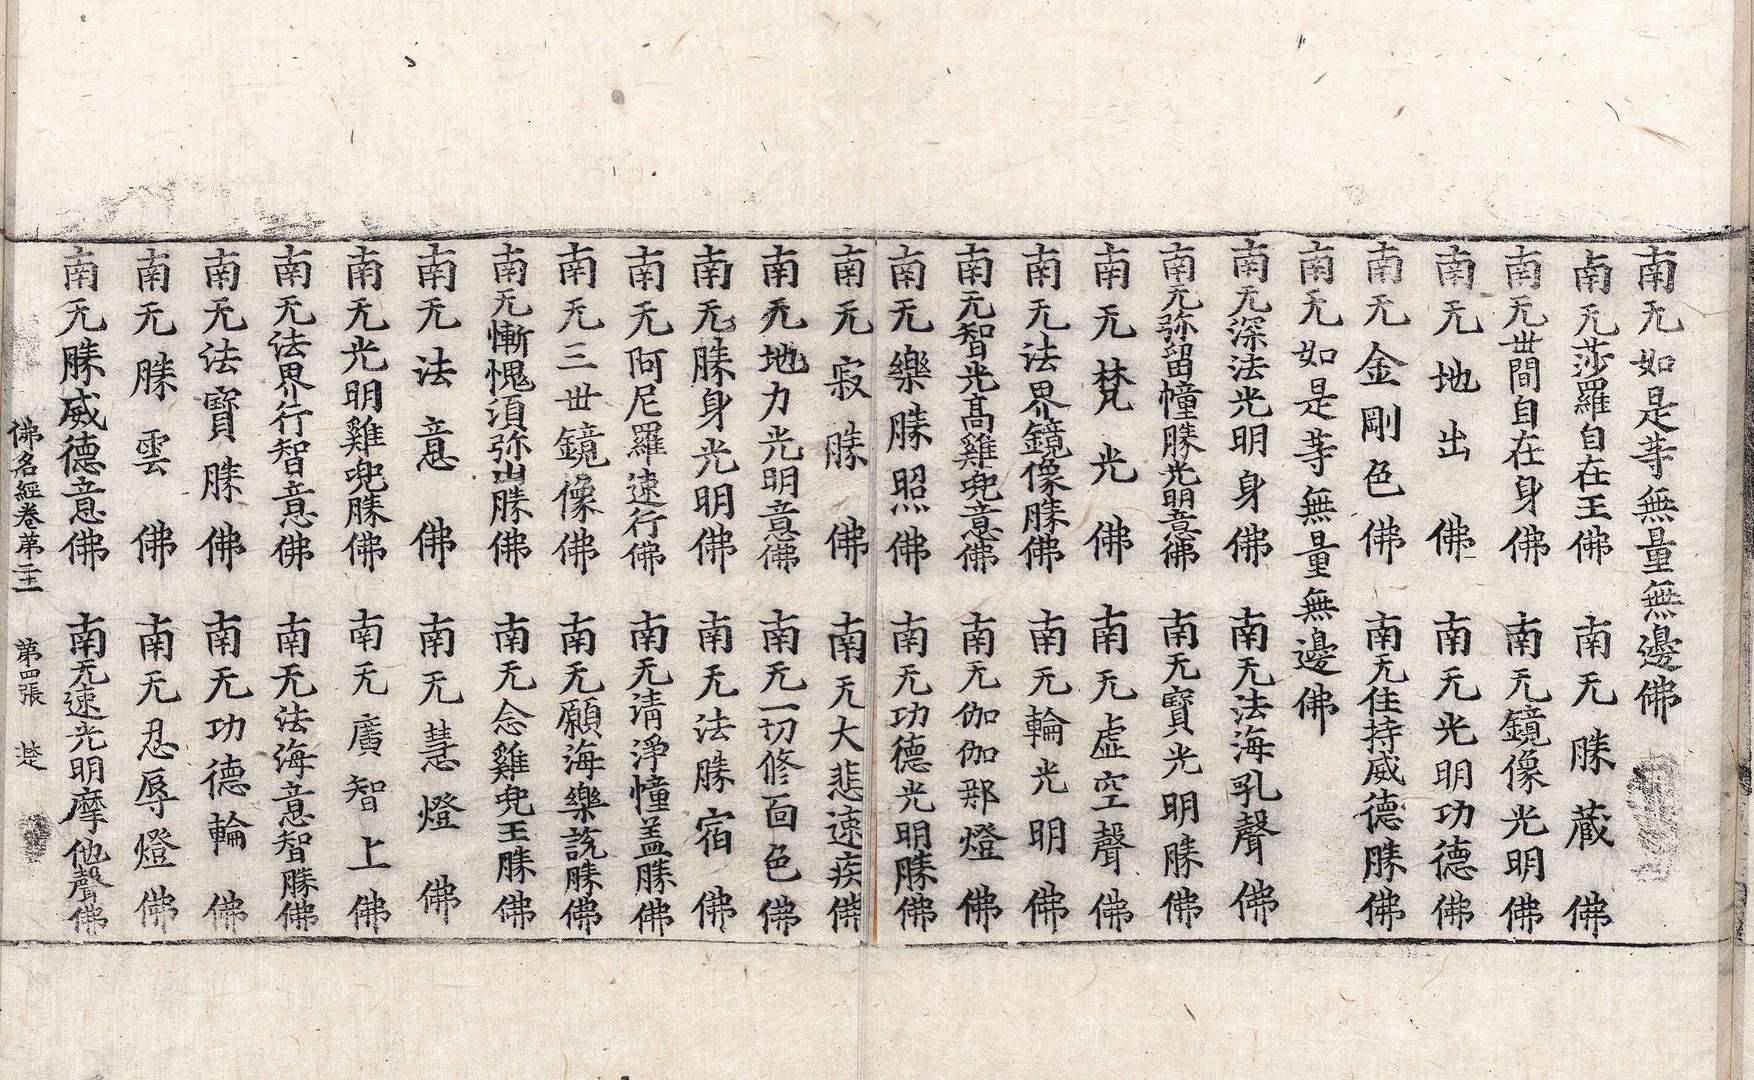 南无如是等無量無邊佛
南无莎羅自在王佛 南无勝藏佛
南无世間自在身佛 南无鏡像光明佛
南无地出佛 南无光明功德佛
南无金剛色佛 南无住持威德勝佛
南无如是等無量無邊佛
南无深法光明身佛 南无法海乳聲佛
南无弥留幢勝光明意佛 南无寶光明勝佛
南无梵光佛 南无虛空聲佛
南无法界鏡像勝佛 南无輪光明佛
南无智光髙雞兜意佛 南无伽伽那燈佛
南无樂勝照佛 南无功德光明勝佛
南无寂勝佛 南无大悲速疾佛
南无地力光明意佛 南无一切修面色佛
南无勝身光明佛 南无法勝宿佛
南无阿尼羅速行佛 南无清淨幢盖勝佛
南无三世鏡像佛 南无願海樂說勝佛
南无慚愧湏弥山勝佛 南无念雞兜王勝佛
南无法意佛 南无慧燈佛
南无光明雞兜勝佛 南无廣智上佛
南无法界行智意佛 南无法海意智勝佛
南无法寶勝佛 南无功德輪佛
南无勝雲佛 南无忍辱燈佛
南无勝威德意佛 南无速光明摩他聲佛
佛名經卷苐二十一 第四張 楚